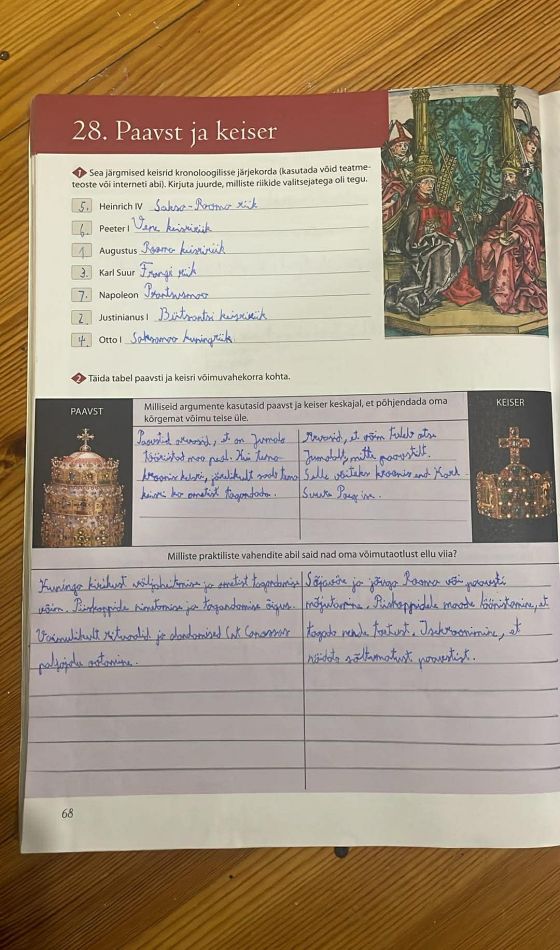 28. Paavst ja keiser
1 Sea järgmised keisrid kronoloogilisse järjekorda (kasutada võid teatme-
teoste või interneti abi). Kirjuta juurde, milliste riikide valitsejatega oli tegu.
5. Heinrich IV Saksa-Rooma riik
6. Peeter I Vene keisririik
1 Augustus Rooma keisririik
3. Karl Suur Frangi riik
7. Napoleon Prantsusmaa
2. Justinianus I Bütsantsi keisririik
4. Otto I Saksamaa kuningriik.
2 Täida tabel paavsti ja keisri võimuvahekorra kohta.
PAAVST
Milliseid argumente kasutasid paavst ja keiser keskajal, et põhjendada oma
kõrgemat võimu teise üle.
KEISER
Paavstid arvasid, et on Jumala
tööriistad maa peal. Kui tema
kroonis keisri, järelikult saab tema
keisri ka ametist tagandada.
Arvasid, et võim tuleb otse
Jumalalt, mitte paavstilt.
Selle võiteks kroonis end Karl
Suure Poeg ise.
Milliste praktiliste vahendite abil said nad oma võimutaotlust ellu viia?
Kuninga kirikust väljaheitmise ja ametist tagandamise
võim. Piiskoppide nimetamise ja tagandamise õigus.
Vaimulikult rituaalid ja alandamised Canossas
paljajalu ootamine.
Sõjaväe ja jõuga Rooma või paavsti
mõjutamine. Piiskoppidele maade läänistamine, et
tagada nende toetust. Isekroonimine, et
näidata sõltumatust paavstist.
68